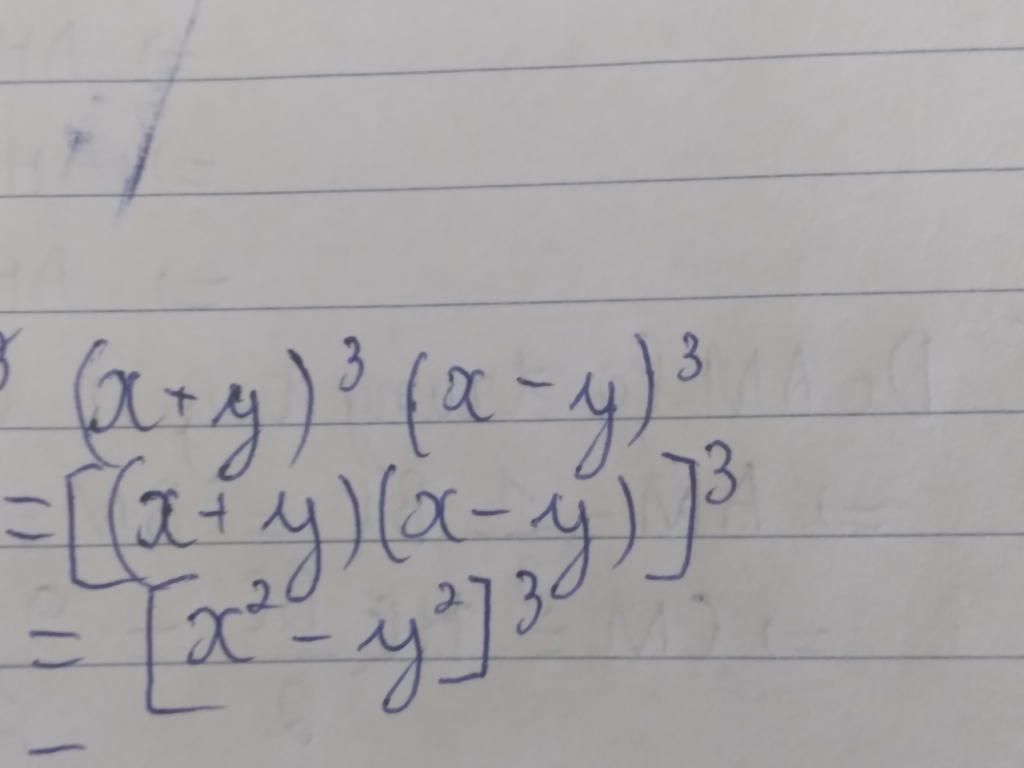 3 (x+y)³ (x-y)³
=[(x+y)(x-y)]³
= [x²-y²]³
-